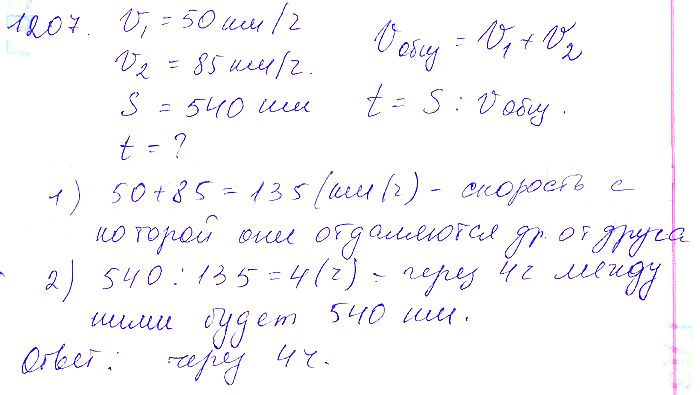 1207. V₁ = 50 км/ч
V₂ = 85 км/ч.
S = 540 км
t = ?
Vобщ = V₁ + V₂
t = S : Vобщ.
1) 50 + 85 = 135 (км/ч) - скорость с
которой они отдаляются др. от друга
2) 540 : 135 = 4 (ч) - через 4 ч между
ними будет 540 км.
Ответ: через 4 ч.